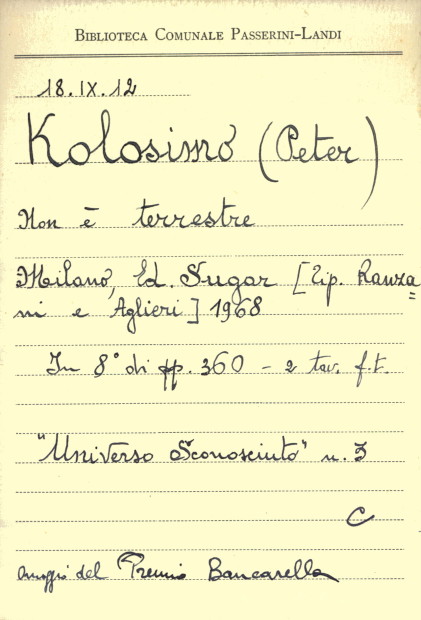 BIBLIOTECA COMUNALE PASSERINI-LANDI
18.IX.12
Kolosimo (Peter)
Non è terrestre
Milano, Ed. Sugar [Tip. Ranza=
ni e Aglieri] 1968
In 8° di pp. 360 - 2 tav. f.t.
"Universo Sconosciuto" n. 3
C
del Premio Bancarella